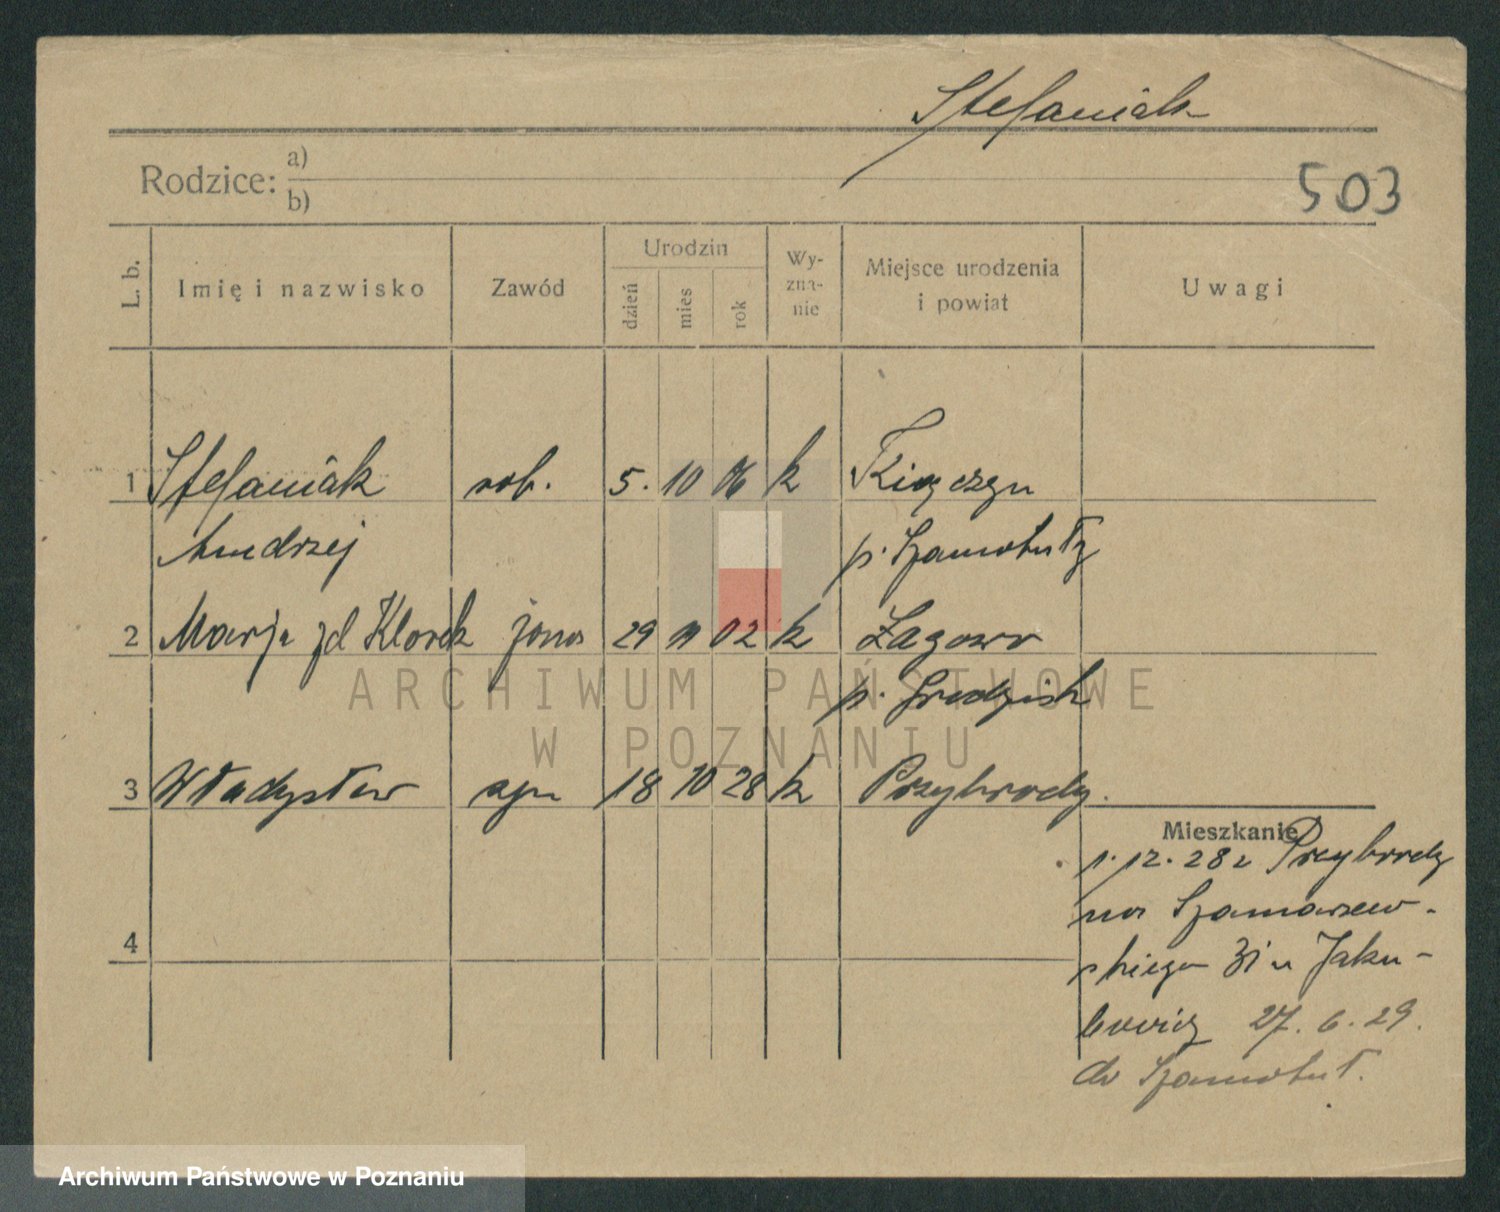 Stefaniak
Rodzice: a)
b)
503
L. b.
Imię i nazwisko
Zawód
Urodzin
dzień
mies
rok
Wy-
zna-
nie
Miejsce urodzenia
i powiat
Uwagi
1 Stefaniak rob. 5. 10 06 k Kiączyn
Andrzej p. Szamotuły
2 Marja zd Klorek żona 29 11 02 k Łagowo
p. Grodzisk
3 Władysław syn 18 10 28 k Przybrody.
Mieszkanie
1. 12. 28 z Przybrody
na Szamarzew-
skiego 31 u Jaku-
bowicz 27. 6. 29.
do Szamotuł.
4
ARCHIWUM PAŃSTWOWE
W POZNANIU
Archiwum Państwowe w Poznaniu